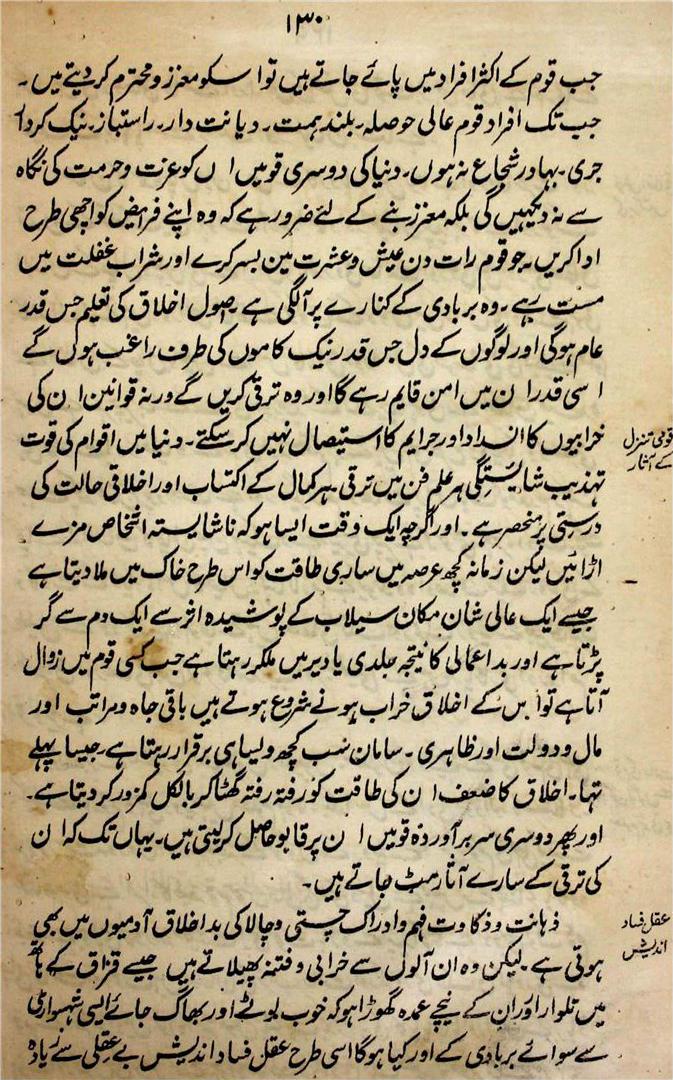 ۱۳۰
جب قوم کے اکثر افراد میں پائے جاتے ہیں تو اسکو معزز و محترم کر دیتے ہیں۔
جب تک افراد قوم عالی حوصلہ۔ بلند ہمت۔ دیانت دار۔ راستباز۔ نیک کردار
جری۔ بہادر شجاع نہ ہوں۔ دنیا کی دوسری قومیں ان کو عزت و حرمت کی نگاہ
سے نہ دیکھیں گی بلکہ معزز بننے کے لئے ضرور ہے کہ وہ اپنے فرایض کو اچھی طرح
ادا کریں۔ جو قوم رات دن عیش و عشرت مین بسر کرے اور شراب غفلت میں
مست رہے۔ وہ بربادی کے کنارے پر آلگی ہے۔ اصول اخلاق کی تعلیم جس قدر
عام ہوگی اور لوگوں کے دل جس قدر نیک کاموں کی طرف راغب ہوں گے
اسی قدر ان میں امن قایم رہے گا اور وہ ترقی کریں گے ورنہ قوانین ان کی
خرابیوں کا انسداد اور جرایم کا استیصال نہیں کر سکتے۔ دنیا میں اقوام کی قوت
قومی تنزل
کے آثار
تہذیب شایستگی ہر علم فن میں ترقی۔ ہر کمال کے اکتساب اور اخلاقی حالت کی
درستی پر منحصر ہے۔ اور اگرچہ ایک وقت ایسا ہو کہ ناشایستہ اشخاص مزے
اڑائیں لیکن زمانہ کچھ عرصہ میں ساری طاقت کو اس طرح خاک میں ملا دیتا ہے
جیسے ایک عالی شان مکان سیلاب کے پوشیدہ اثر سے ایک دم سے گر
پڑتا ہے اور بد اعمالی کا نتیجہ جلدی یا دیر میں ملکر رہتا ہے جب کسی قوم میں زوال
آتا ہے تو اس کے اخلاق خراب ہونے شروع ہوتے ہیں باقی جاہ و مراتب اور
مال و دولت اور ظاہری۔ سامان سب کچھ ویسا ہی برقرار رہتا ہے۔ جیسا پہلے
تہا۔ اخلاق کا ضعف ان کی طاقت کو رفتہ رفتہ گھٹا کر بالکل کمزور کر دیتا ہے۔
اور پھر دوسری سربرآوردہ قومیں ان پر قابو حاصل کر لیتی ہیں۔ یہاں تک کہ ان
کی ترقی کے سارے آثار مٹ جاتے ہیں۔
ذہانت و ذکاوت فہم و ادراک چستی و چالاکی بد اخلاق آدمیوں میں بھی
عقل فساد
اندیش
ہوتی ہے۔ لیکن وہ ان آلوں سے خرابی و فتنہ پھیلاتے ہیں جیسے قزاق کے ہاتھ
میں تلوار اور ان کے نیچے عمدہ گھوڑا ہو کہ خوب لوٹے اور بھاگ جائے ایسی شہسواری
سے سوائے بربادی کے اور کیا ہوگا اسی طرح عقل فساد اندیش بے عقلی سے زیادہ